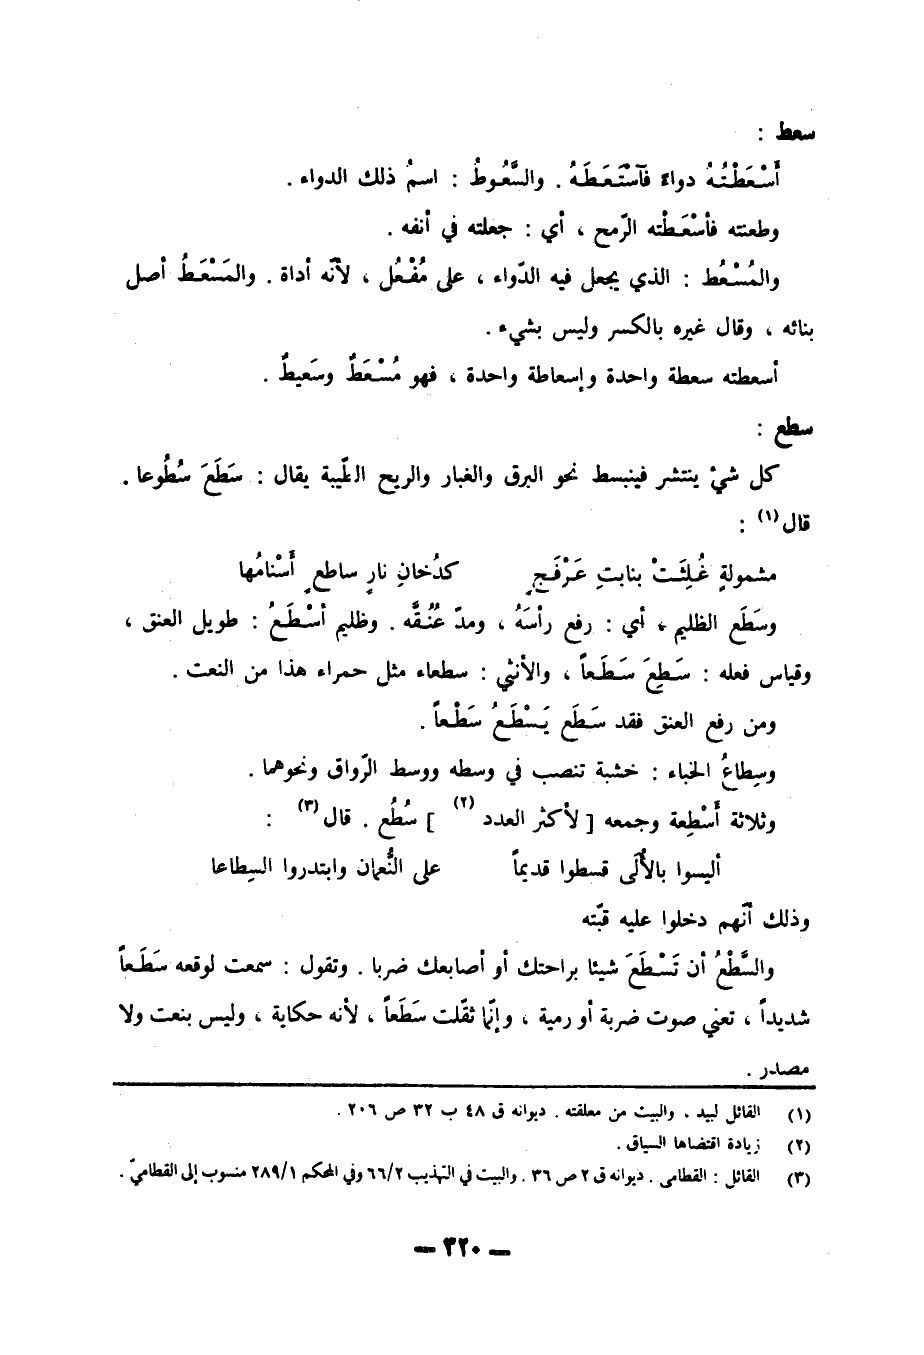 سعط :
أَسْعَطْتُهُ دواءً فَآسْتَعَطَهُ . والسَّعُوطُ : اسمُ ذلك الدواء .
وطعنته فأسْعَطْته الرّمح ، أي : جعلته في أنفه .
والمُسْعُط : الذي يجعل فيه الدّواء ، على مُفْعُل ، لأنّه أداة . والمَسْعَطُ أصل
بنائه ، وقال غيره بالكسر وليس بشيء .
أسعطته سعطة واحدة وإسعاطة واحدة ، فهو مُسْعَطٌ وسَعيطٌ .
سطع :
كل شيْ ينتشر فينبسط نحو البرق والغبار والريح الطّيبة يقال : سَطَعَ سُطُوعا .
قال (١) :
مشمولةٍ غُلِثَتْ بنابتِ عَرْفَجٍ كدُخانِ نارٍ ساطعٍ أَسْنامُها
وسَطَع الظليم ، أي : رفع رأسَهُ ، ومدّ عُنُقَّه . وظليم أسْطَعُ : طويل العنق ،
وقياس فعله : سَطِعَ سَطَعاً ، والأنثي : سطعاء مثل حمراء هذا من النعت .
ومن رفع العنق فقد سَطَع يَسْطَعُ سَطْعاً .
وسِطاعُ الخباء : خشبة تنصب في وسطه ووسط الرّواق ونحوهما .
وثلاثة أَسْطِعة وجمعه [ لأكثر العدد (٢) ] سُطُع . قال (٣) :
أليسوا بالأُلَى قسطوا قديماً على النُّعمان وابتدروا السِطاعا
وذلك أنّهم دخلوا عليه قبّته
والسَّطْعُ أن تَسْطَعَ شيئا براحتك أو أصابعك ضربا . وتقول : سمعت لوقعه سَطَعاً
شديداً ، تعني صوت ضربة أو رمية ، وإنّما ثقّلت سَطَعاً ، لأنه حكاية ، وليس بنعت ولا
مصدر .
(١) القائل لبيد ، والبيت من معلقته . ديوانه ق ٤٨ ب ٣٢ ص ٢٠٦ .
(٢) زيادة اقتضاها السياق .
(٣) القائل : القطامى . ديوانه ق ٢ ص ٣٦ . والبيت في التهذيب ٦٦/٢ وفي المحكم ٢٨٩/١ منسوب إلى القطاميّ .
— ٣٢٠ —